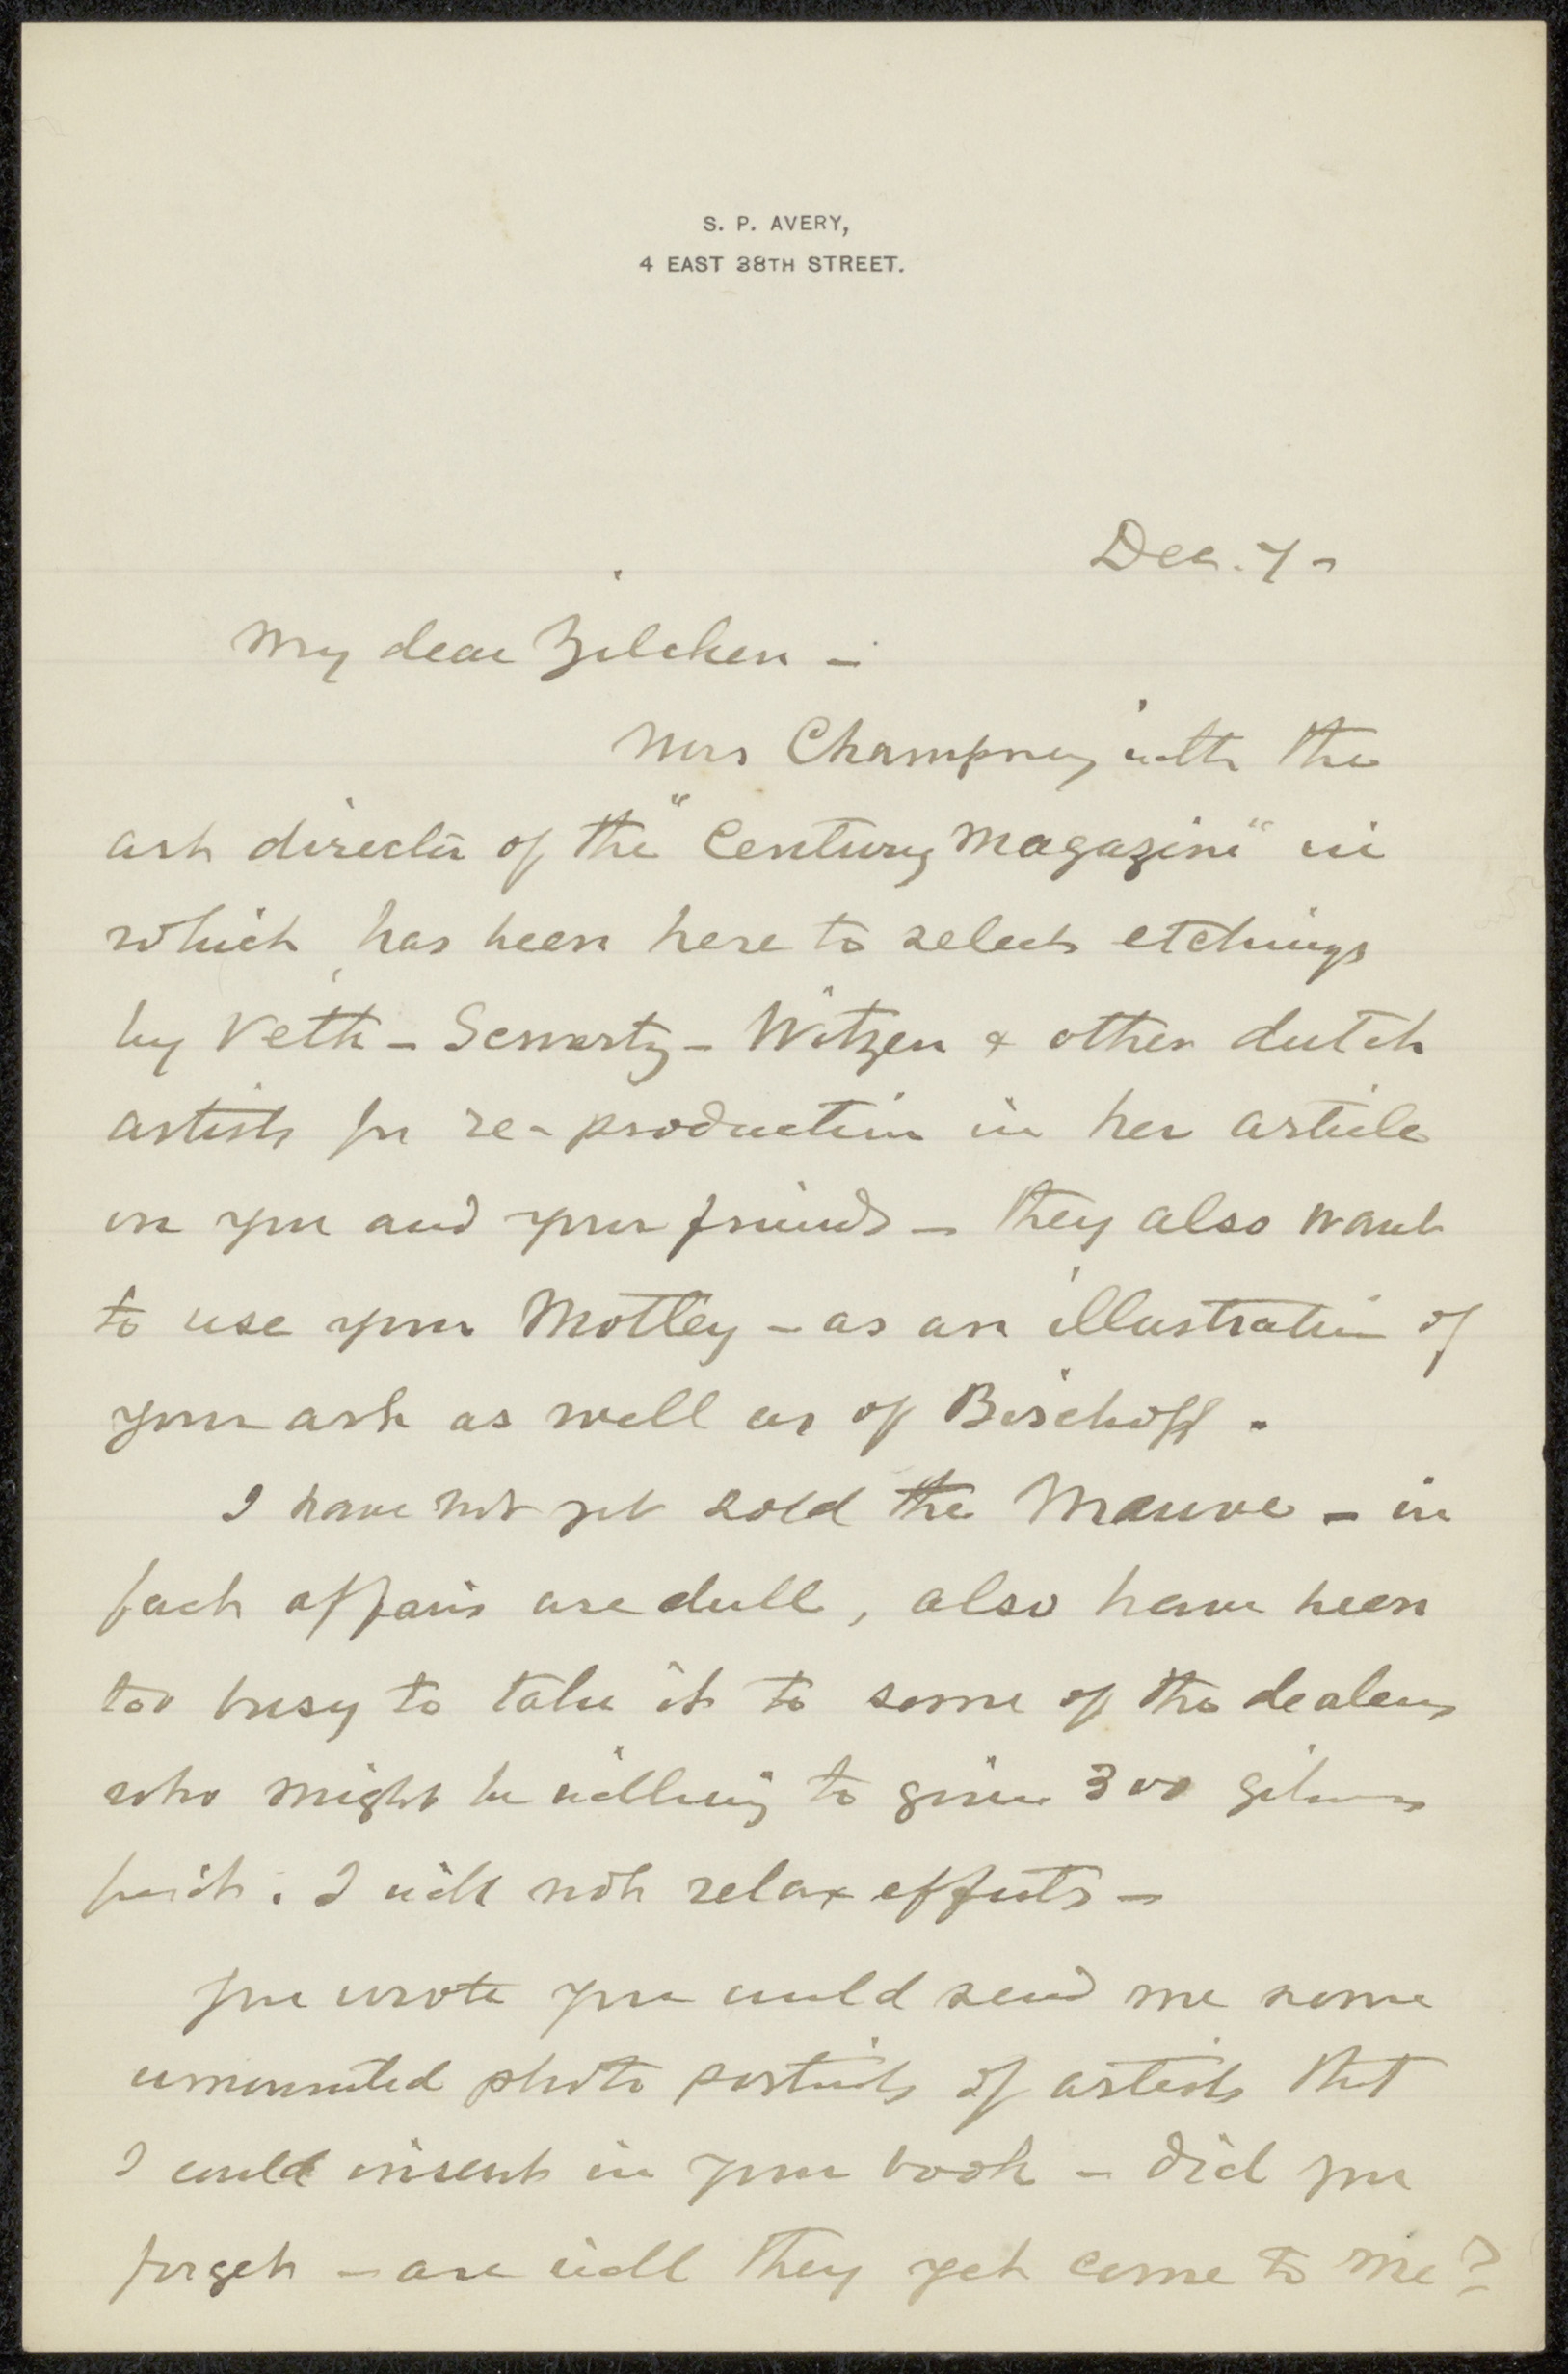 S. P. AVERY,
4 EAST 38TH STREET.
Dec. 7 -
My dear Zilcken -
Mrs Champney with the
art director of the "Century Magazine" in
which, has been here to select etchings
by Veth - Scwartz - Witzen & other dutch
artists for re-production in her article
on you and your friends - they also want
to use your Motley - as an illustration of
your art as well as of Bischoff.
I have not yet sold the Mauve - in
fact affairs are dull, also have been
too busy to take it to some of the dealers
who might be willing to give 300 
for it. I will not relax efforts -
You wrote you could send me some
unmounted photo portraits of artists that
I could insert in your book - did you
forget - are will they yet come to me?